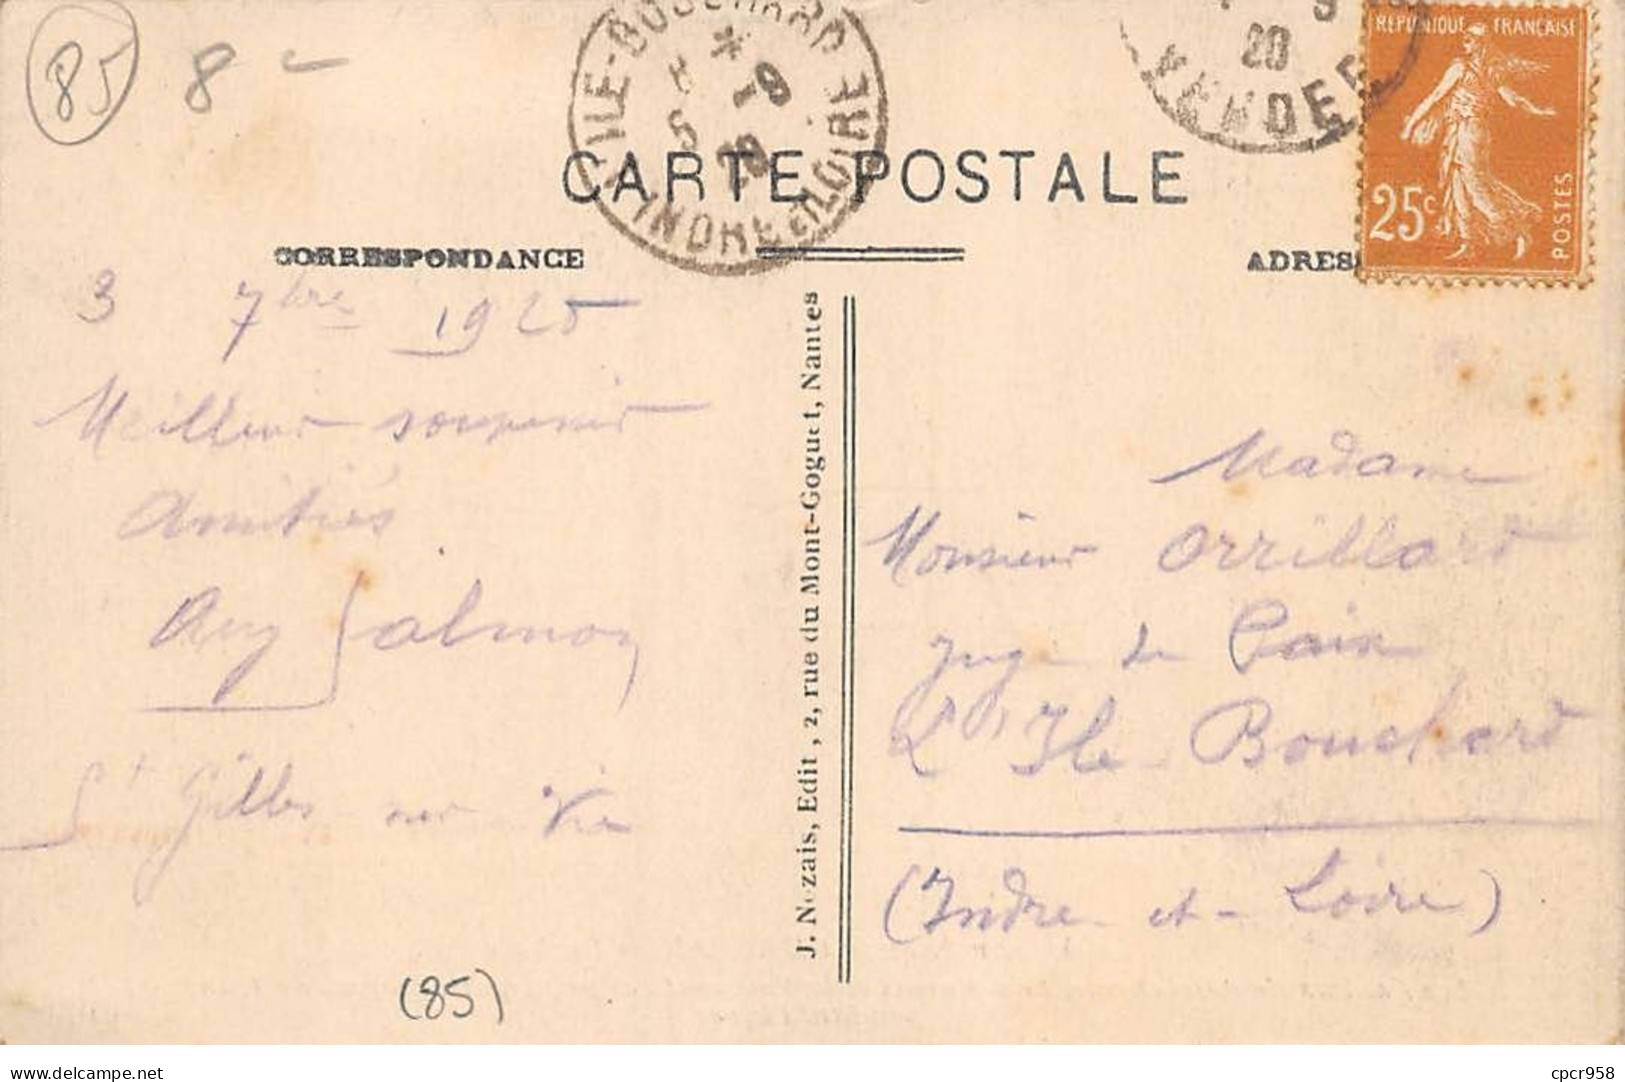 85
8
ILE-BOUCHARD
INDRE-ET-LOIRE
9
20
VENDEE
REPUBLIQUE FRANÇAISE
25c
POSTES
CARTE POSTALE
CORRESPONDANCE
ADRES
3 7bre 1925
Meilleur souvenir
Amitiés
Aug Salmon
St Gilles sur Vie
J. Nozais, Edit, 2, rue du Mont-Goguet, Nantes
Madame
Monsieur Orrillard
Juge de Paix
L' Ile Bouchard
(Indre-et-Loire)
(85)
cpcr958